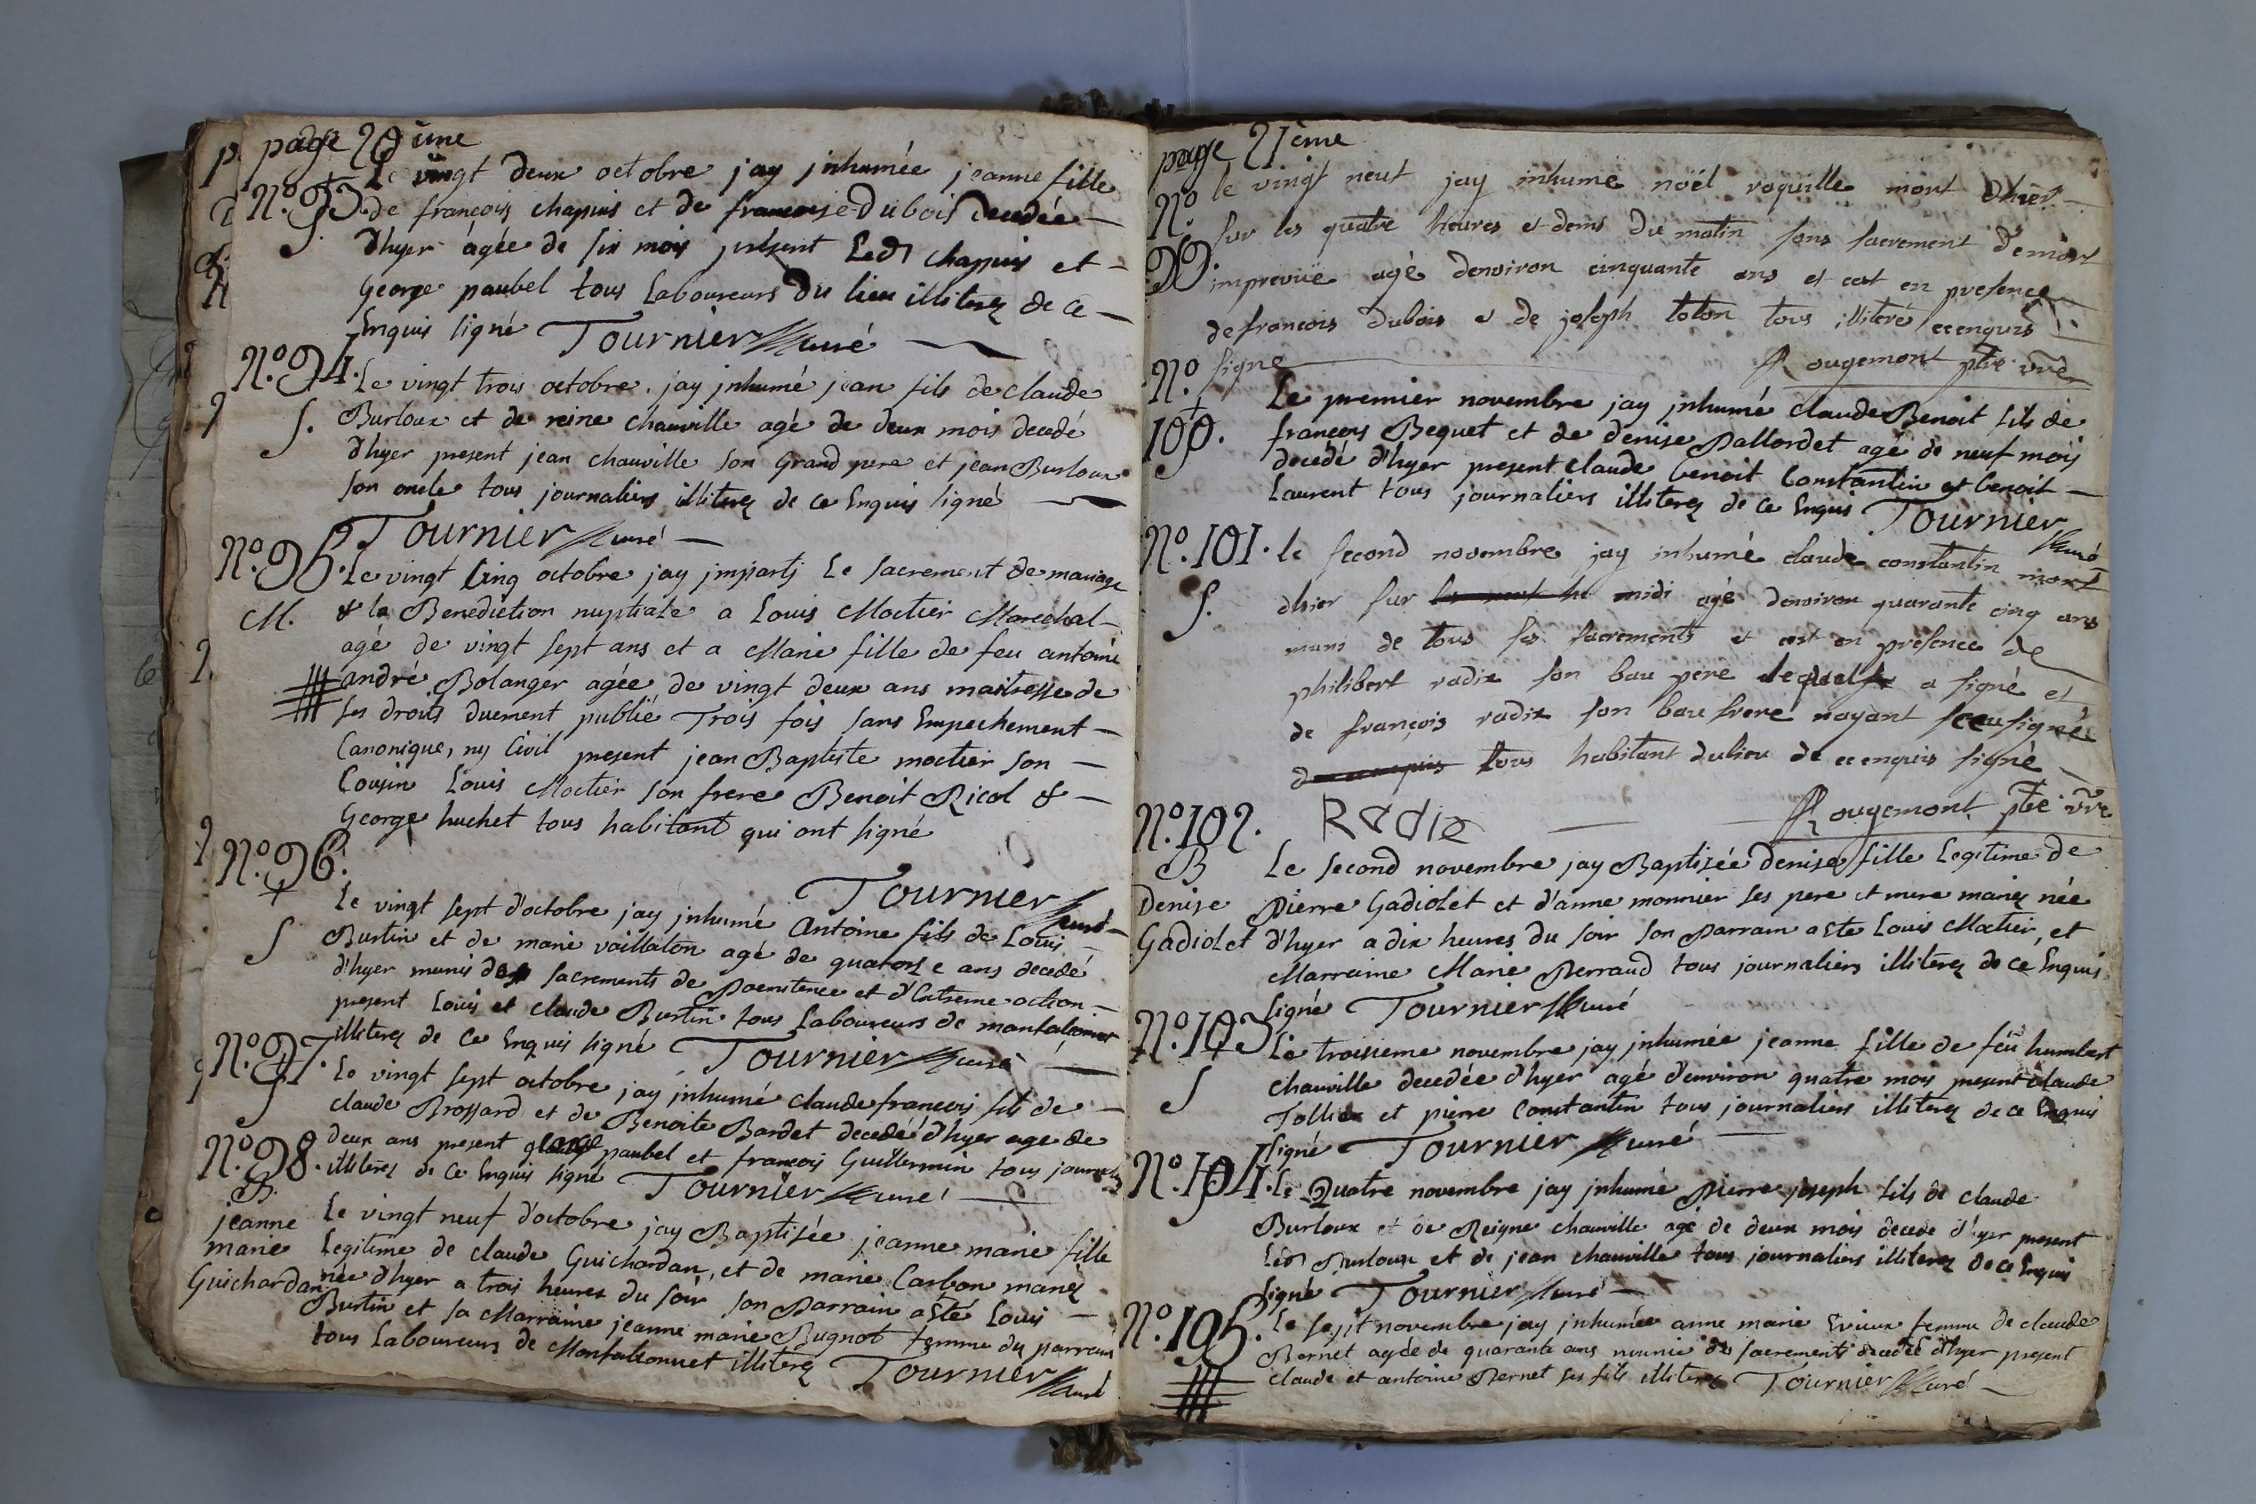 page 20 ème
N.° 93. Le vingt deux octobre jay jnhumée jeanne fille
de françois chapuis et de francoise Dubois decedée
S. d'hyer âgée de six mois present Led chapuis et
George paubel tous Laboureurs du lieu illiterez de ce
Enquis signé Tournier curé
N.° 94. Le vingt trois octobre jay jnhumé jean fils de claude
S. Burloux et de reine chauville agé de deux mois decedé
d'hyer present jean chauville son grand pere et jean Burloux
son oncle tous journaliers illiterez de ce Enquis signé
Tournier curé
N.° 95. Le vingt Cinq octobre jay jmparti Le sacrement de mariage
M. & la Benediction nuptiale a Louis Moctier Marechal
agé de vingt sept ans et a Marie fille de feu antoine
andré Bolanger agée de vingt deux ans maitresse de
ses droits duement publié Trois fois sans Empechement
Canonique, ny Civil present jean Baptiste moctier son
Cousin Louis Moctier son frere Benoit Ricol &
George huchet tous habitant qui ont signé
N.° 96.
Tournier curé
Le vingt sept d'octobre jay jnhumé Antoine fils de Louis
S Burtin et de marie vaillalon agé de quatorze ans decedé
d'hyer munis des sacrements de Poenitence et d'Extreme-oction
present Louis et claude Burtin tous Laboureurs de
illiterez de ce Enquis signé Tournier curé
N.° 97. Le vingt sept octobre jay jnhumé claude francois fils de
S claude Brossard et de Benoite Bardet decedé d'hyer age de
deux ans present george paubel et francois Guillermin tous
N.° 98. illiterez de ce Enquis signé Tournier curé
B.
jeanne Le vingt neuf d'octobre jay Baptisée jeanne marie fille
marie Legitime de claude Guichardan, et de marie Carbon mariez
Guichardan née d'hyer a trois heures du soir son Parrain a Eté Louis
Burtin et sa Marraine jeanne marie Bugnot femme du parrain
tous Laboureurs de illiterez Tournier curé
page 21 ème
N.° le vingt neuf jay inhumé noël roquille mort dhier
sur les quatre heures et demis du matin sans sacrement de mort
99. imprevüe agé denviron cinquante ans et cest en presence
de francois dubois et de joseph toton tous illiteré ce enquis
signe Rougemont ptre vre
N.° Le premier novembre jay jnhumé claude Benoit fils de
100. francois Bequet et de denise Pallordet agé de neuf mois
S decedé d'hyer present claude benoit Constantin et benoit
Laurent tous journaliers illiterez de ce Enquis Tournier curé
N.° 101. le second novembre jay inhumé claude constantin mort
S. dhier sur midi agé denviron quarante cinq ans
muni de tous ses sacrements et cest en presence de
philibert radix son bau pere lequel a signé et
de françois radix son bau frere nayant sceu signé
tous habitant dulieu de ce enquis signé
Radix Rougemont ptre vre
N.° 102.
B Le second novembre jay Baptisée denise fille Legitime de
Denise Pierre Gadiolet et d'anne monnier ses pere et mere mariez née
Gadiolet d'hyer a dix heures du soir son Parrain a Eté Louis Moctier, et
Marraine Marie Perraud tous journaliers illiterez de ce Enquis
signé Tournier curé
N.° 103 Le troisieme novembre jay jnhumée jeanne fille de feü humbert
S chauville decedée d'hyer agé d'environ quatre mois present claude
Tollie et pierre Constantin tous journaliers illiterez de ce Enquis
signé Tournier curé
N.° 104. Le Quatre novembre jay jnhumé Pierre joseph fils de claude
S Burloux et de Reigne chauville agé de deux mois decede d'hyer present
Led Burloux et de jean chauville tous journaliers illiterez de ce Enquis
signé Tournier curé
N.° 105. Le sept novembre jay jnhumée anne marie Evieux femme de claude
Bernet agée de quarante ans munie des sacrements decedée d'hyer present
claude et antoine Bernet ses fils illiterez Tournier curé